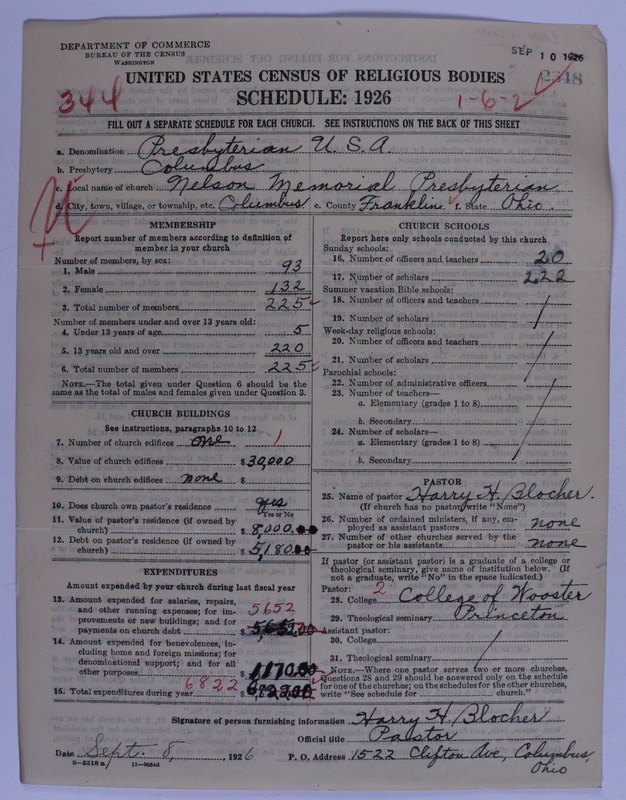 DEPARTMENT OF COMMERCE
BUREAU OF THE CENSUS
WASHINGTON
SEP 10 1926
2348
UNITED STATES CENSUS OF RELIGIOUS BODIES
344
SCHEDULE: 1926
1-6-2
FILL OUT A SEPARATE SCHEDULE FOR EACH CHURCH. SEE INSTRUCTIONS ON THE BACK OF THIS SHEET
a. Denomination Presbyterian U.S.A.
b. Presbytery Columbus
c. Local name of church Nelson Memorial Presbyterian
d. City, town, village, or township, etc. Columbus e. County Franklin f. State Ohio.
MEMBERSHIP
Report number of members according to definition of
member in your church
Number of members, by sex:
1. Male 93
2. Female 132
3. Total number of members 225
Number of members under and over 13 years old:
4. Under 13 years of age 5
5. 13 years old and over 220
6. Total number of members 225
NOTE.—The total given under Question 6 should be the
same as the total of males and females given under Question 3.
CHURCH BUILDINGS
See instructions, paragraphs 10 to 12
7. Number of church edifices one 1
8. Value of church edifices $30,000
9. Debt on church edifices none $
10. Does church own pastor's residence yes
Yes or No
11. Value of pastor's residence (if owned by
church) $8,000.00
12. Debt on pastor's residence (if owned by
church) $5,180.00
EXPENDITURES
Amount expended by your church during last fiscal year
13. Amount expended for salaries, repairs,
and other running expenses; for im-
provements or new buildings; and for
payments on church debt $5652.00
5652
14. Amount expended for benevolences, in-
cluding home and foreign missions; for
denominational support; and for all
other purposes $1170.00
6822
15. Total expenditures during year $6822.00
CHURCH SCHOOLS
Report here only schools conducted by this church
Sunday schools:
16. Number of officers and teachers 20
17. Number of scholars 222
Summer vacation Bible schools:
18. Number of officers and teachers
19. Number of scholars
Week-day religious schools:
20. Number of officers and teachers
21. Number of scholars
Parochial schools:
22. Number of administrative officers
23. Number of teachers—
a. Elementary (grades 1 to 8)
b. Secondary
24. Number of scholars—
a. Elementary (grades 1 to 8)
b. Secondary
PASTOR
25. Name of pastor Harry H. Blocher.
(If church has no pastor, write "None")
26. Number of ordained ministers, if any, em-
ployed as assistant pastors none
27. Number of other churches served by the
pastor or his assistants none
If pastor (or assistant pastor) is a graduate of a college or
theological seminary, give name of institution below. (If
not a graduate, write "No" in the space indicated.)
Pastor: 2
28. College College of Wooster
29. Theological seminary Princeton
Assistant pastor:
30. College
31. Theological seminary
NOTE.—Where one pastor serves two or more churches,
Questions 28 and 29 should be answered only on the schedule
for one of the churches; on the schedules for the other churches,
write "See schedule for church."
Signature of person furnishing information Harry H. Blocher
Official title Pastor
Date Sept. 8, 1926 P. O. Address 1522 Clifton Ave., Columbus,
Ohio
8—5518a